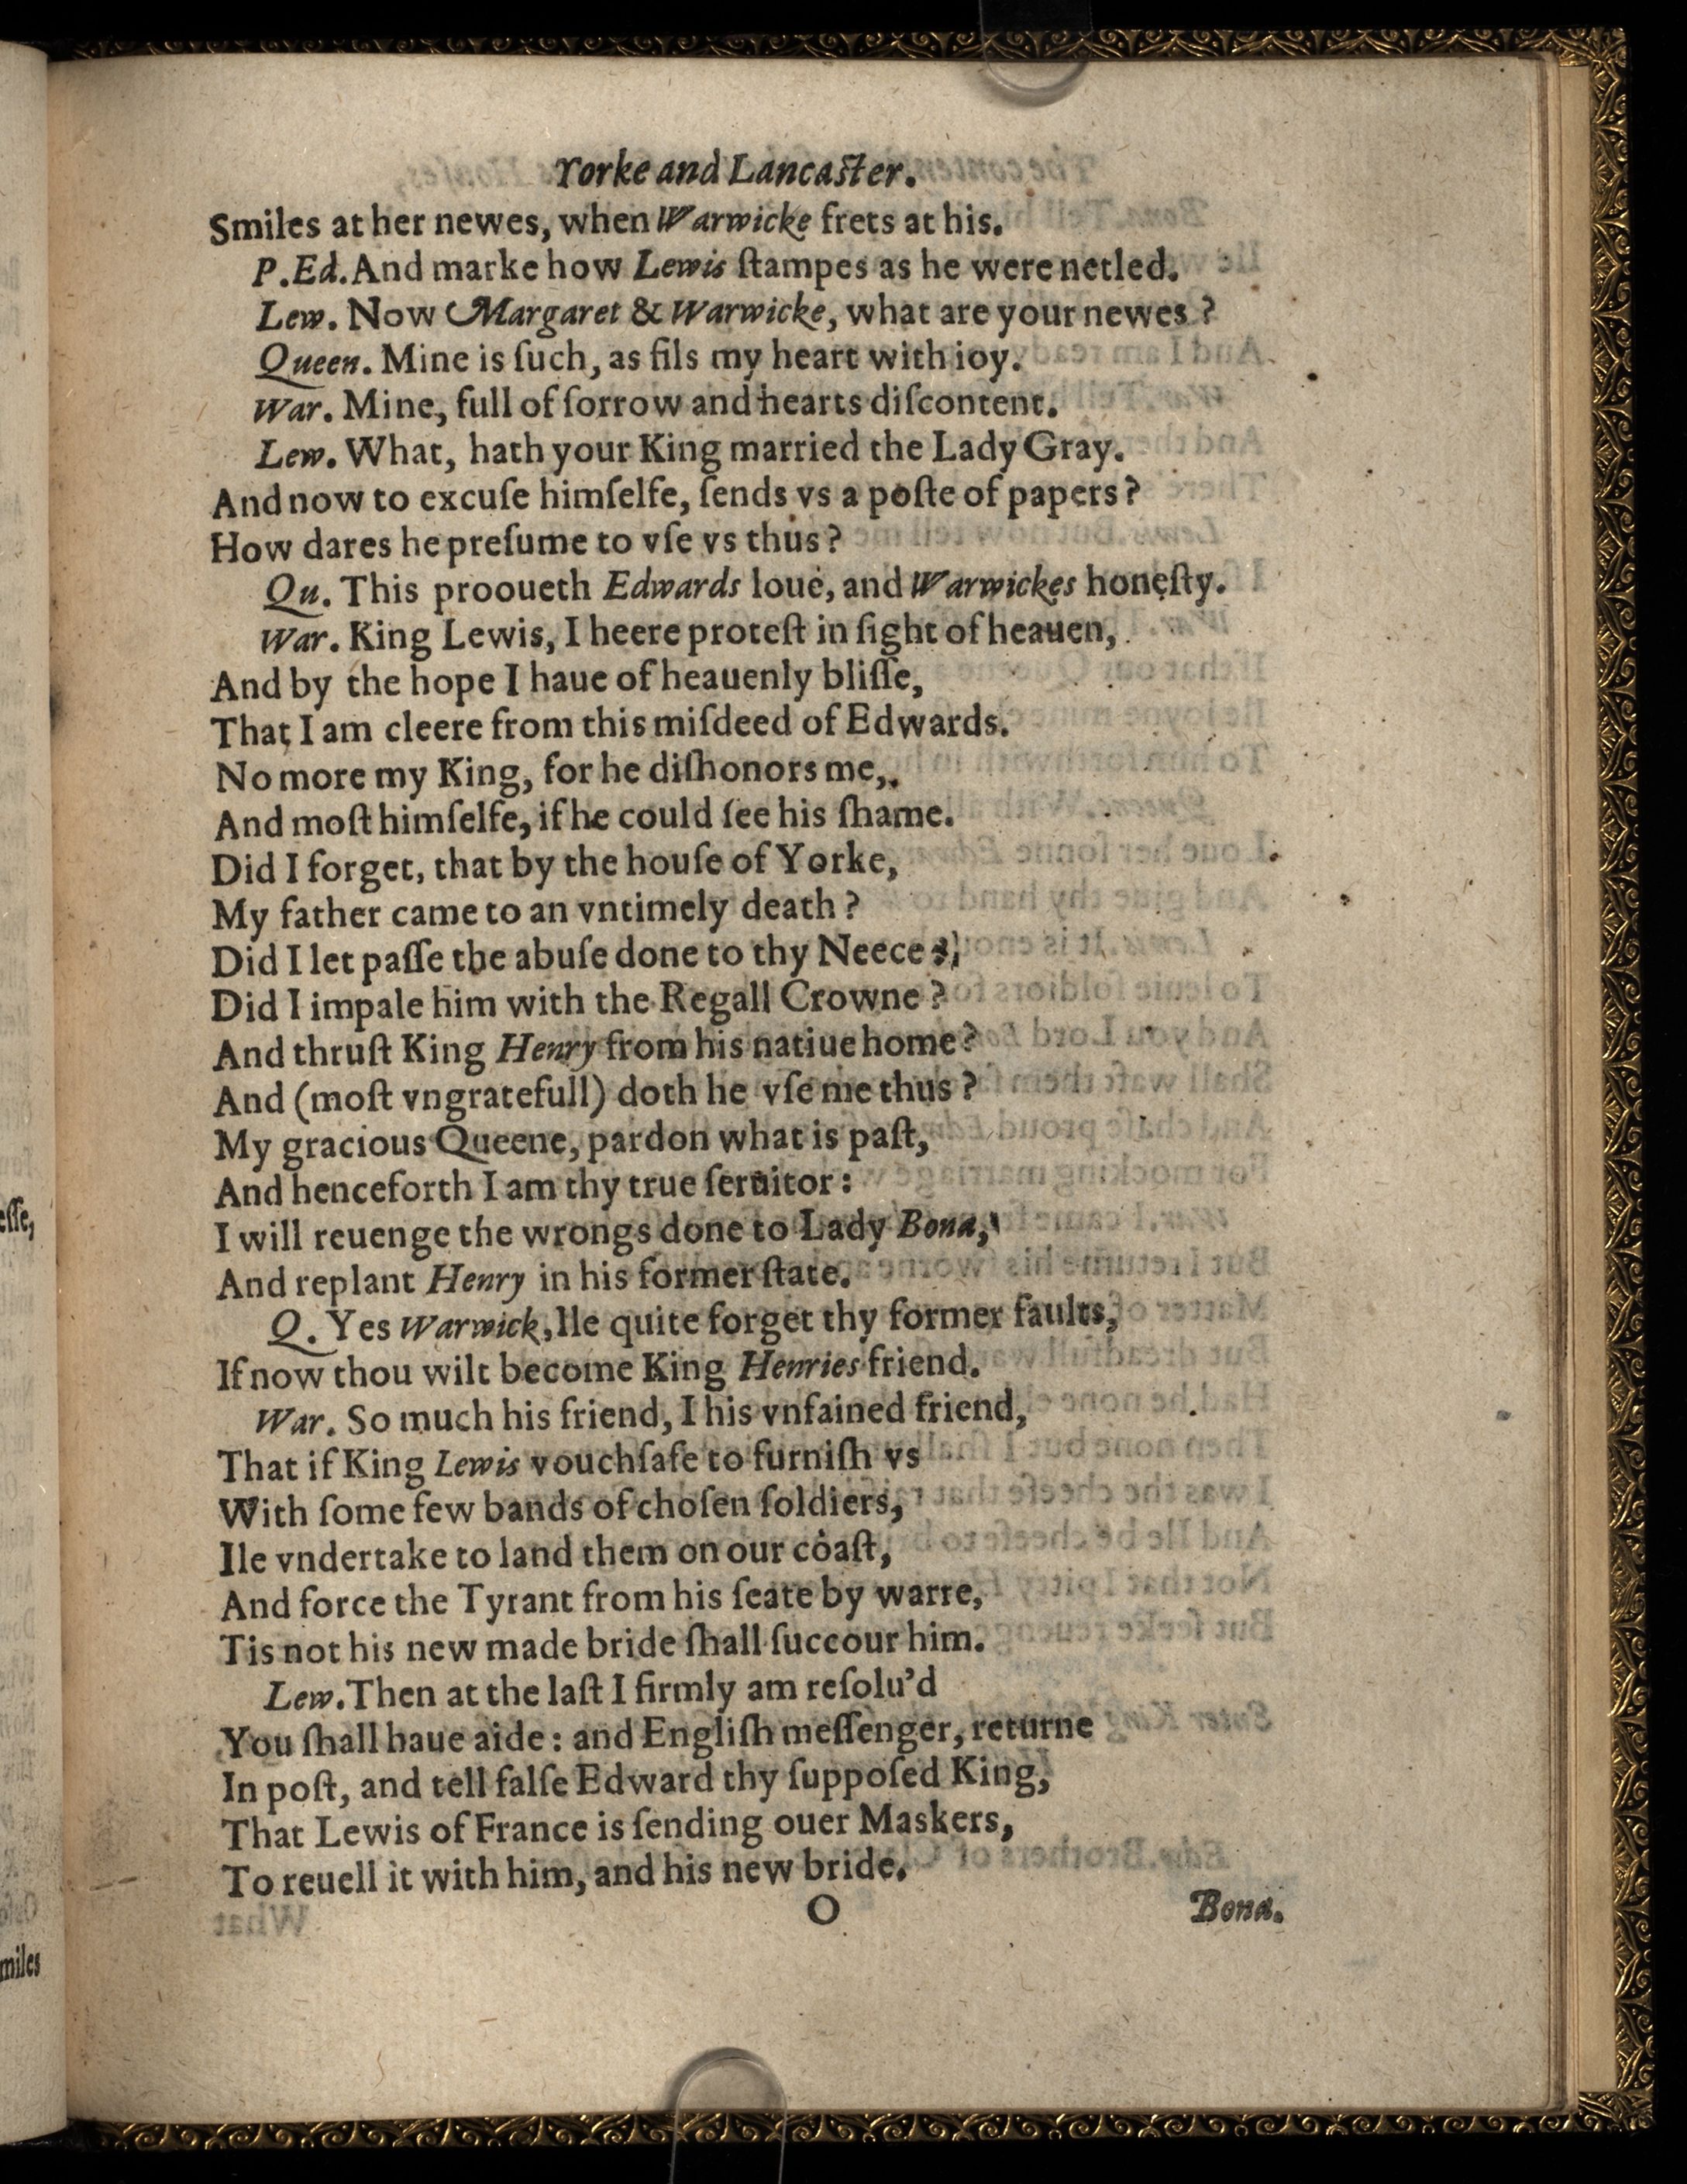 Yorke and Lancaſter.
Smiles at her newes, when Warwicke frets at his.
P.Ed. And marke how Lewis ſtampes as he were netled.
Lew. Now Margaret & Warwicke, what are your newes?
Queen. Mine is ſuch, as fils my heart with ioy.
War. Mine, full of ſorrow and hearts diſcontent.
Lew. What, hath your King married the Lady Gray.
And now to excuſe himſelfe, ſends vs a poſte of papers?
How dares he preſume to vſe vs thus?
Qu. This prooueth Edwards loue, and Warwickes honeſty.
War. King Lewis, I heere proteſt in ſight of heauen,
And by the hope I haue of heauenly bliſſe,
That I am cleere from this miſdeed of Edwards.
No more my King, for he diſhonors me,
And moſt himſelfe, if he could ſee his ſhame.
Did I forget, that by the houſe of Yorke,
My father came to an vntimely death?
Did I let paſſe the abuſe done to thy Neece?
Did I impale him with the Regall Crowne?
And thruſt King Henry from his natiue home?
And (moſt vngratefull) doth he vſe me thus?
My gracious Queene, pardon what is paſt,
And henceforth I am thy true ſeruitor:
I will reuenge the wrongs done to Lady Bona,
And replant Henry in his former ſtate.
Q. Yes Warwick, Ile quite forget thy former faults,
If now thou wilt become King Henries friend.
War. So much his friend, I his vnfained friend,
That if King Lewis vouchſafe to furniſh vs
With ſome few bands of choſen ſoldiers,
Ile vndertake to land them on our coaſt,
And force the Tyrant from his ſeate by warre,
Tis not his new made bride ſhall ſuccour him.
Lew. Then at the laſt I firmly am reſolu'd
You ſhall haue aide: and Engliſh meſſenger, returne
In poſt, and tell falſe Edward thy ſuppoſed King,
That Lewis of France is ſending ouer Maskers,
To reuell it with him, and his new bride.
O
Bona.